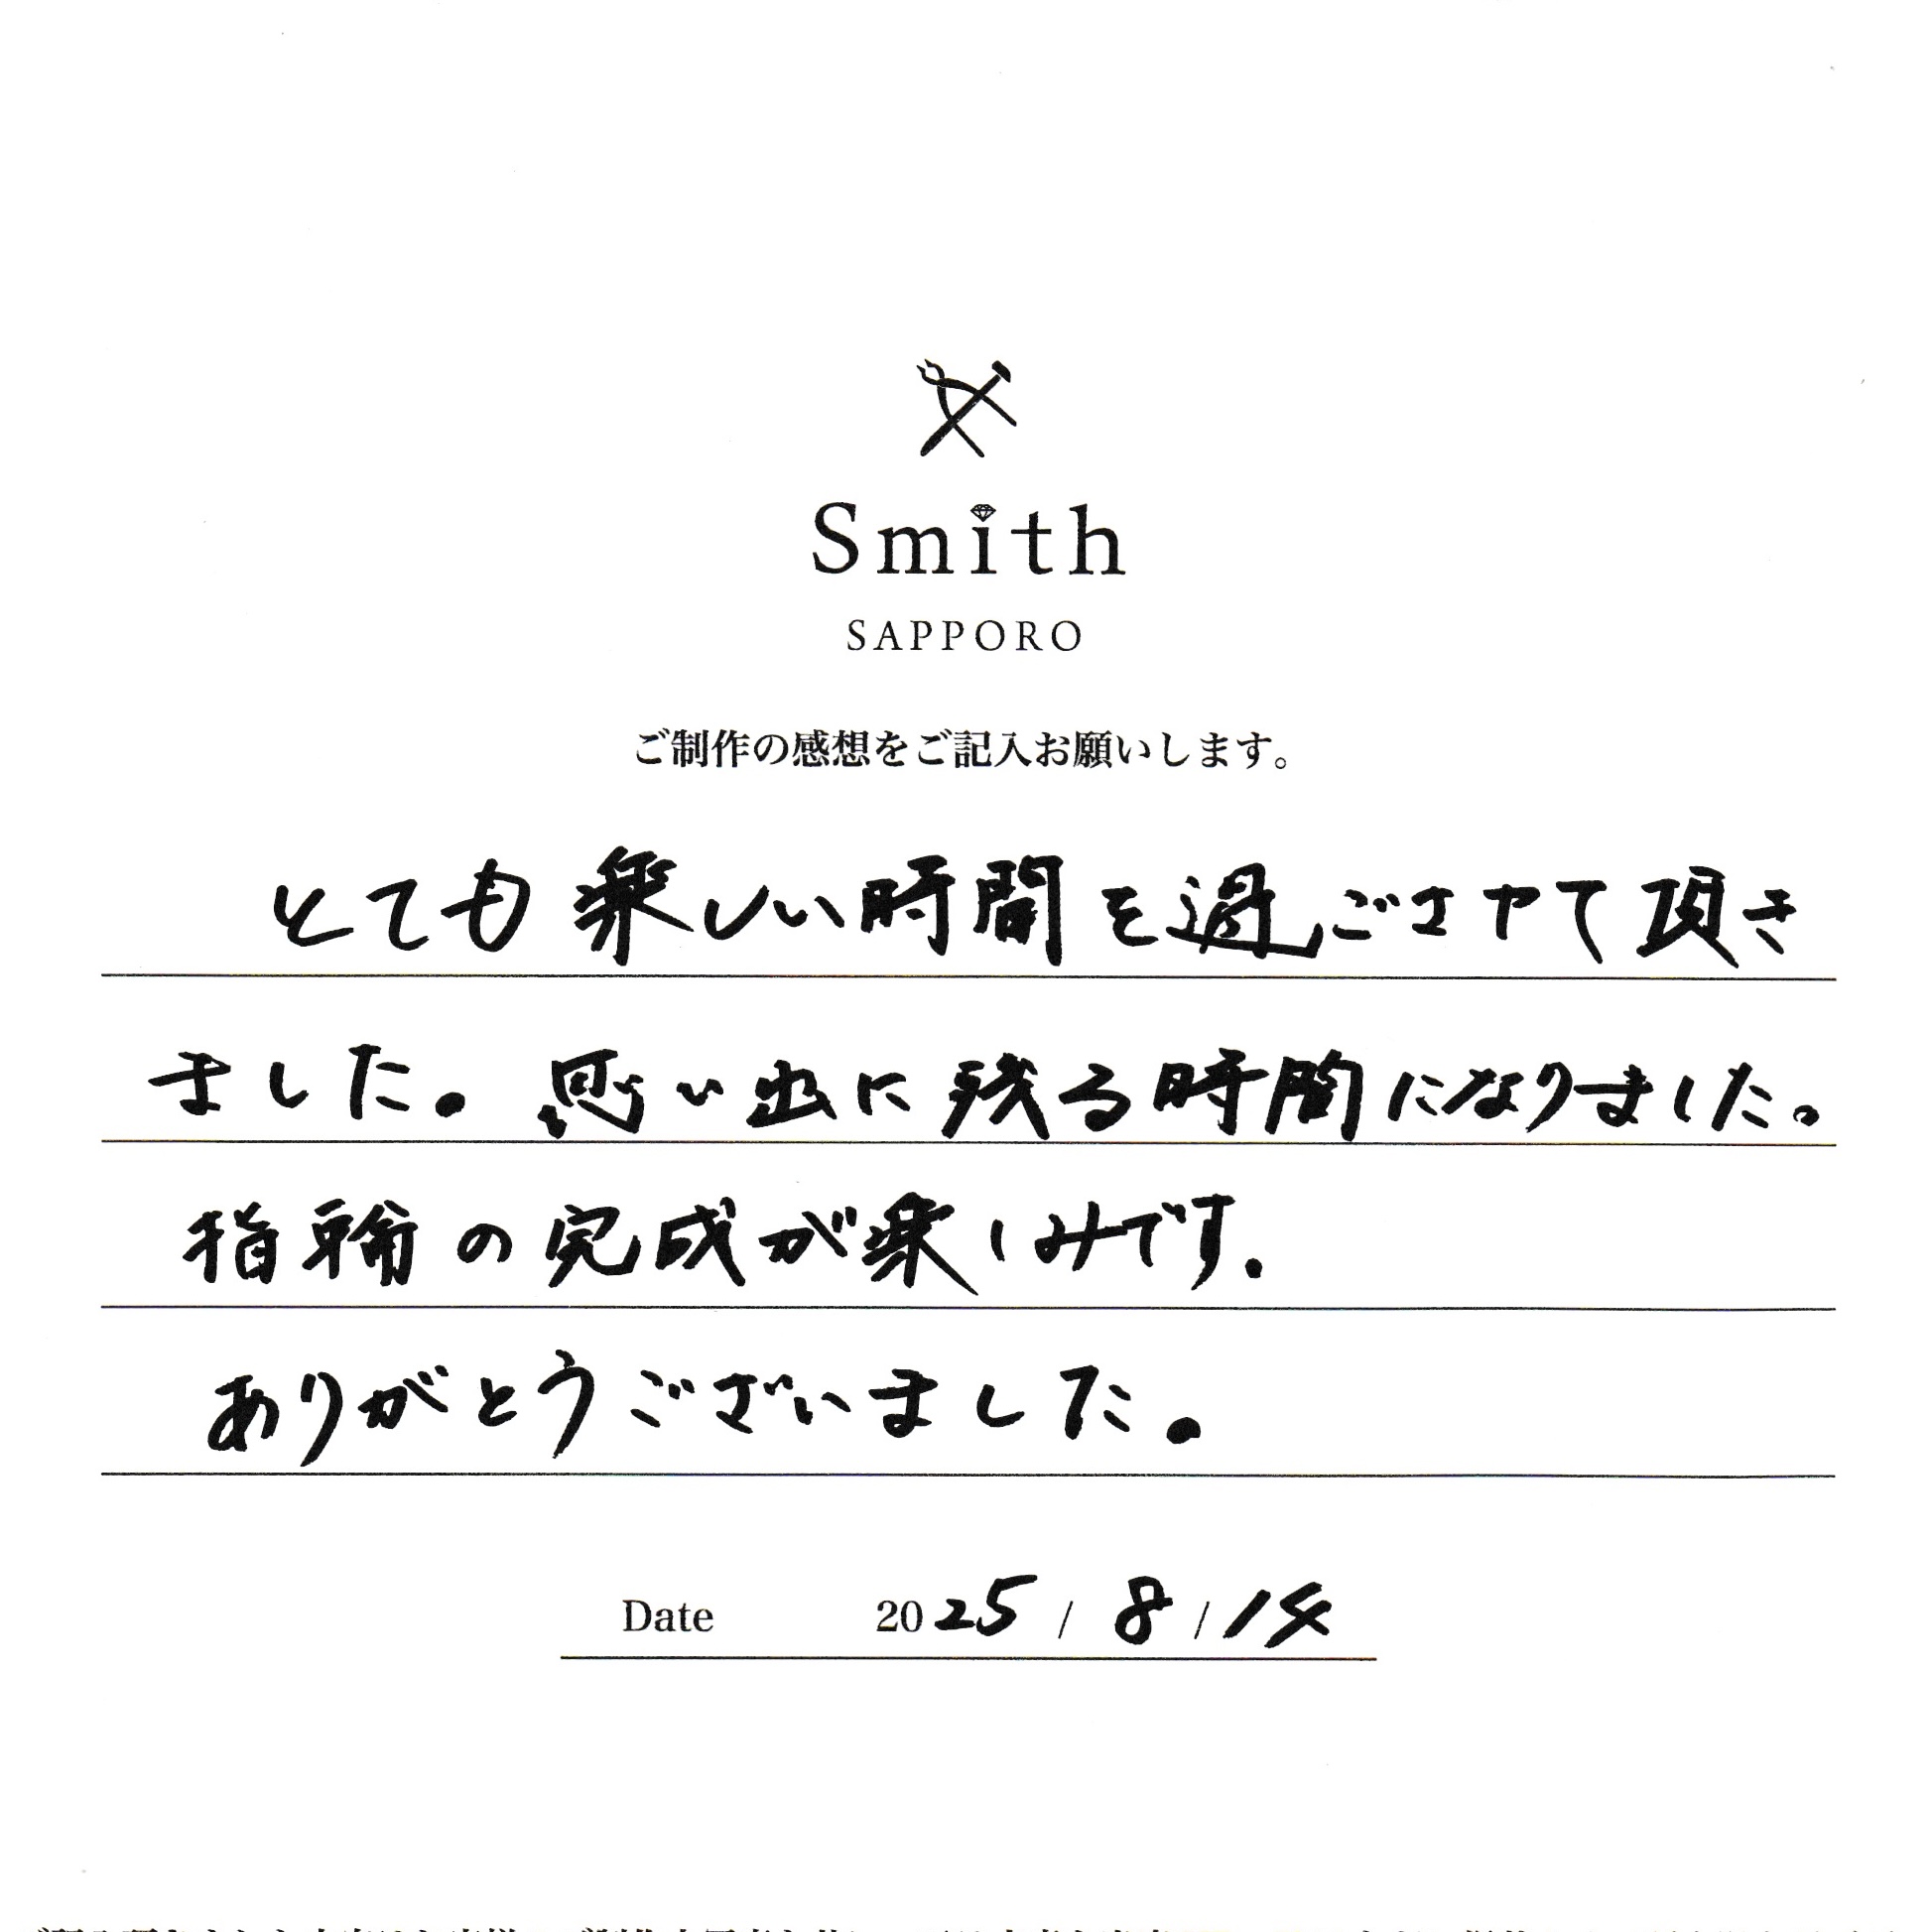 Smith
SAPPORO
ご制作の感想をご記入お願いします。
とても楽しい時間を過ごさせて頂き
ました。思い出に残る時間になりました。
指輪の完成が楽しみです.
ありがとうございました。
Date 2025 / 8 / 14